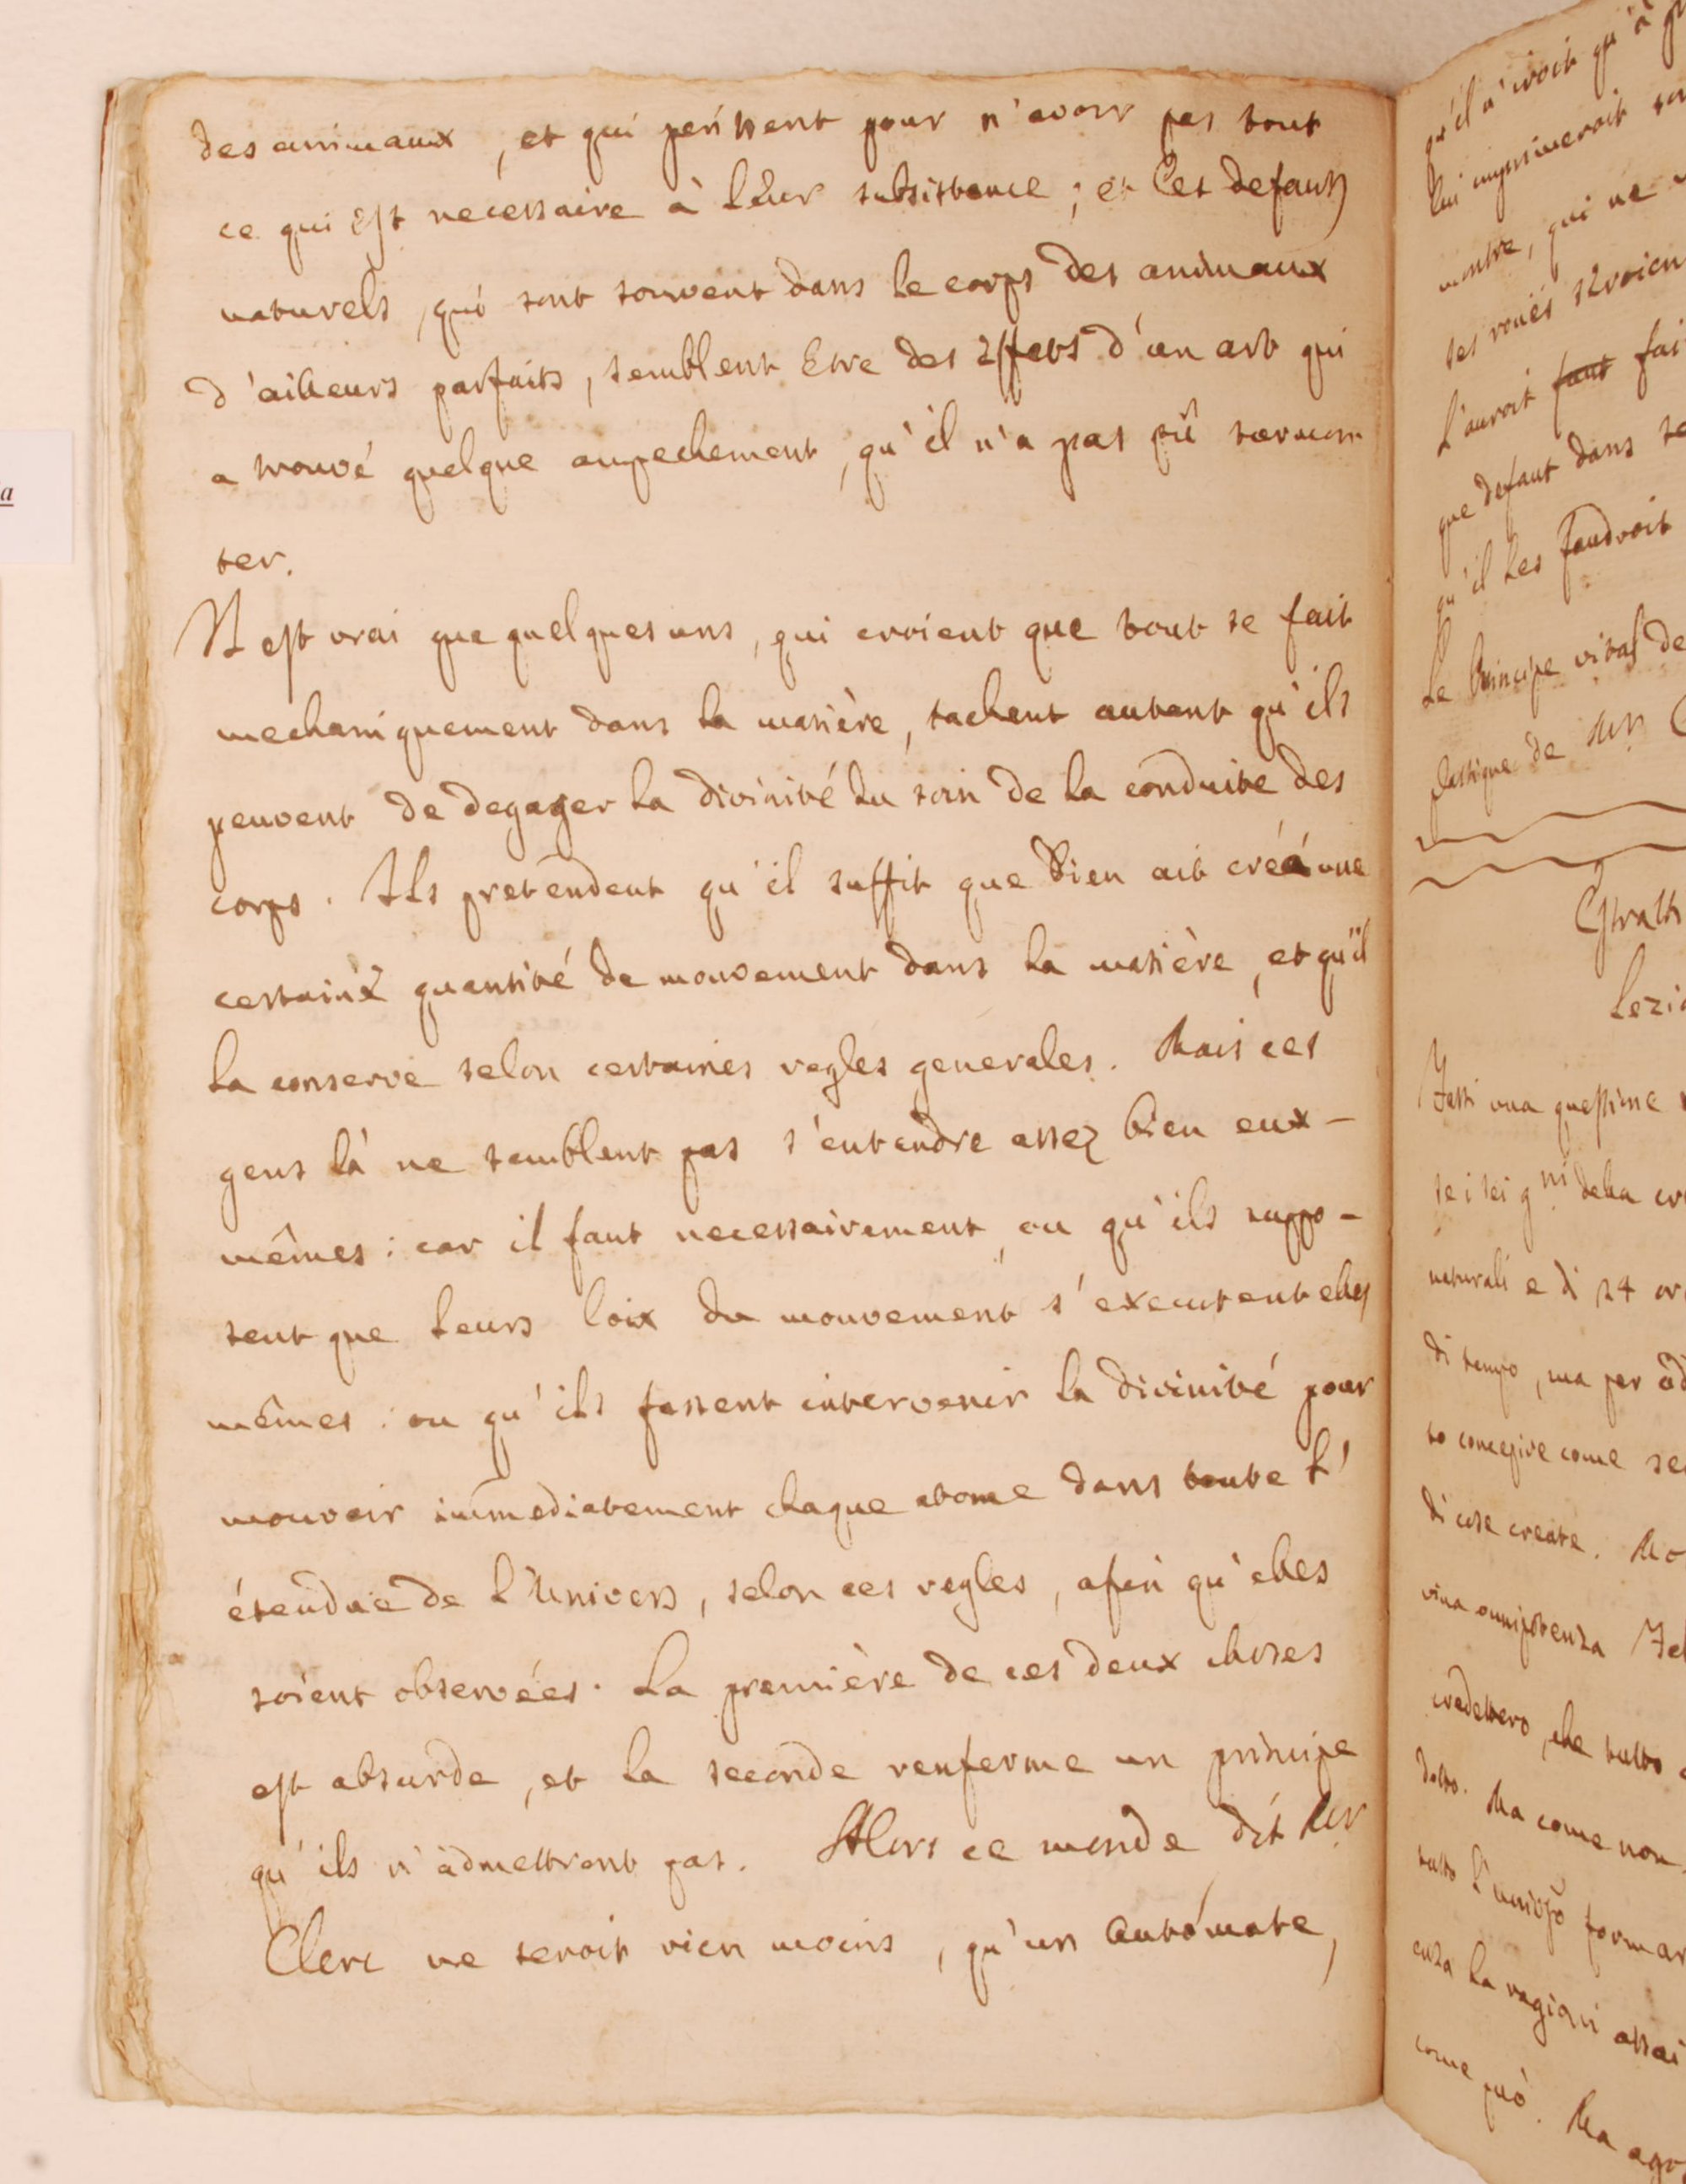 des animaux, et qui perissent pour n'avoir pas tout
ce qui est necessaire à leur subsistance; et Ces defauts
naturels, qui sont souvent dans le corps des animaux
d'ailleurs parfaits, semblent Etre des effets d'un art qui
a trouvé quelque empechement, qu'il n'a pas pû surmon
ter.
Il est vrai que quelques uns, qui croient que tout se fait
mechaniquement dans la matière, tachent autant qu'ils
peuvent de degager la divinité du soin de la conduite des
corps. Ils pretendent qu'il suffit que Dieu ait créé une
certaine quantité de mouvement dans la matière, et qu'il
la conserve selon certaines regles generales. Mais ces
gens là ne semblent pas s'entendre assez bien eux-
mêmes: car il faut necessairement, ou qu'ils suppo-
sent que leurs loix du mouvement s'executent elles
mêmes: ou qu'ils fassent intervenir la divinité pour
mouvoir immediatement chaque atome dans toute l'
étendue de l'Univers, selon ces regles, afin qu'elles
soient observées. La première de ces deux choses
est absurde, et la seconde renferme un principe
qu'ils n'admettront pas. Alors ce monde dit Mr
Clerc ne seroit rien moins, qu'un Automate,
qu'il n'iroit qu'à
lui imprimeroit
montre, qui ne
ses roües seroien
L'auroit faut fai
que defaut dans se
qu'il les faudroit
Le Principe vital de
plastique de Mr. C
Estratt
Lezi
Fassi una questione
se i sei gni della cr
naturali e di 24 or
di tempo, ma per ad
to concepire come se
di cose create. Mo
vina onnipotenza
credettero, che tutto
dotto. Ma come non
tutto l'universo formar
enza la ragioni assai
come può. Ma